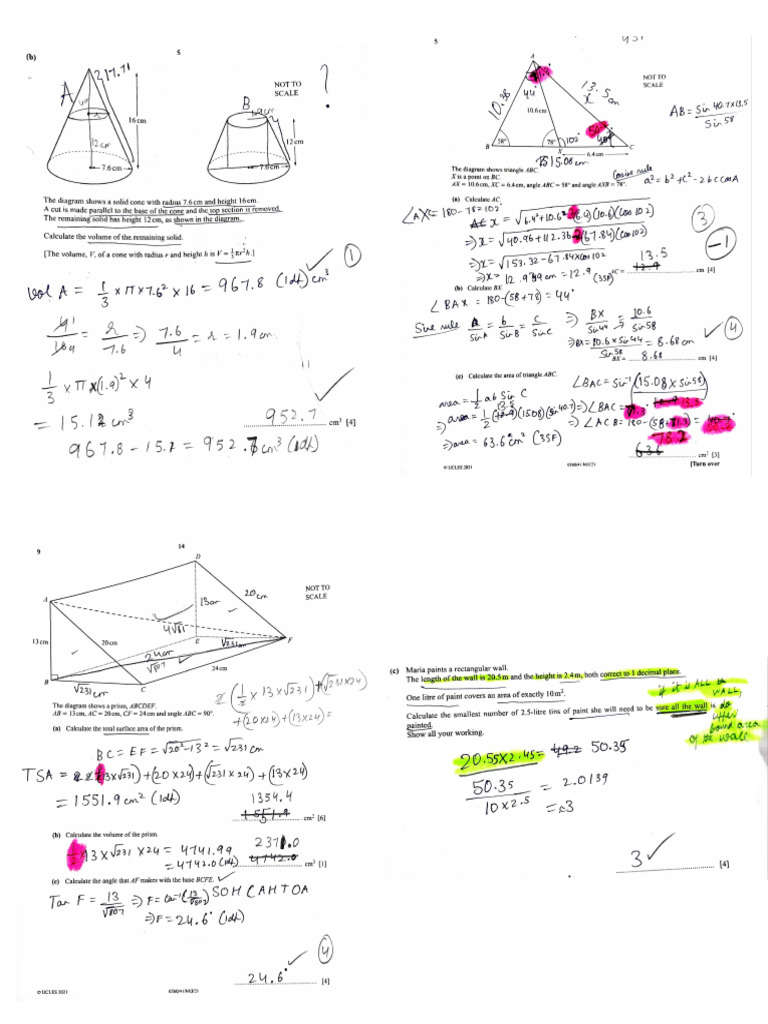 5
(b)
NOT TO
SCALE
?
A
17.71
16cm
12cm
7.6cm
B
12cm
7.6cm
The diagram shows a solid cone with radius 7.6cm and height 16cm.
A cut is made parallel to the base of the cone and the top section is removed.
The remaining solid has height 12cm, as shown in the diagram.
Calculate the volume of the remaining solid.
[The volume, V, of a cone with radius r and height h is V = 1/3 πr²h.]
Vol A = 1/3 × π × 7.6² × 16 = 967.8 (1df) cm³
1
r/7.6 => 7.6/4 = r = 1.9cm
1/3 × π × (1.9)² × 4
= 15.12 cm³
952.7
cm³ [4]
967.8 - 15.1 = 952.7 cm³ (1df)
5
A
NOT TO
SCALE
10.38
44
13.5
x cm
10.6cm
AB = Sin 40.7 × 13.5 / Sin 58
58°
78°
102
B
X
C
6.4cm
15.08cm
The diagram shows triangle ABC.
X is a point on BC.
AX = 10.6 cm, XC = 6.4 cm, angle ABC = 58° and angle AXB = 78°.
Cosine rule
a² = b² + c² - 2bc cos A
(a) Calculate AC.
∠AX = 180 - 78 = 102°
x = √6.4² + 10.6² - 2(6.4)(10.6)(cos 102)
=> x = √40.96 + 112.36 - (67.84)(cos 102)
=> x = √153.32 - 67.84 × cos 102
=> x = 12.9 cm = 12.9 (3SF)
3
-1
13.5
12.9
cm [4]
(b) Calculate BX.
∠BAX = 180 - (58+78) = 44°
Sine rule a/SinA = b/SinB = c/SinC => BX/Sin44 = 10.6/Sin58
=> BX = 10.6 × Sin 44 / Sin 58 = 8.68 cm
4
BX = 8.68 cm [4]
(c) Calculate the area of triangle ABC.
∠BAC = Sin⁻¹ (15.08 × Sin 58)
area = 1/2 ab Sin C
13.5
=> area = 1/2 (12.9)(15.08)(Sin 40.7) => ∠BAC =
=> ∠ACB = 180 - (58+71.3) =
=> area = 63.6 cm² (3SF)
78.2
636
cm² [3]
© UCLES 2021
0580/41/M/J/21
[Turn over
9
14
D
NOT TO
SCALE
20cm
13cm
A
4√61
E
F
13cm
20cm
√231cm
24cm
√807
24cm
B
√231cm
C
The diagram shows a prism, ABCDEF.
AB = 13 cm, AC = 20 cm, CF = 24 cm and angle ABC = 90°.
2(1/2 × 13 × √231) + (√231 × 24)
+ (20×24) + (13×24) =
(a) Calculate the total surface area of the prism.
BC = EF = √20² - 13² = √231 cm
TSA = (13×√231) + (20×24) + (√231 × 24) + (13×24)
= 1551.9 cm² (1df)
1354.4
1551.9
cm² [6]
(b) Calculate the volume of the prism.
1/2 × 13 × √231 × 24 = 4741.99
= 4742.0 (1df)
2371.0
4742.0
cm³ [1]
(c) Calculate the angle that AF makes with the base BCFE.
Tan F = 13/√807 => F = tan⁻¹ (13/√807) SOH CAH TOA
=> F = 24.6° (1df)
4
24.6°
[4]
© UCLES 2021
0580/41/M/J/21
(c) Maria paints a rectangular wall.
The length of the wall is 20.5 m and the height is 2.4 m, both correct to 1 decimal place.
One litre of paint covers an area of exactly 10 m².
Calculate the smallest number of 2.5-litre tins of paint she will need to be sure all the wall is painted.
Show all your working.
if it is ALL the
WALL,
do
upper
bound area
of the wall
20.55 × 2.45 = 49.2 50.35
50.35 / 10 × 2.5 = 2.0139
= 3
3
[4]